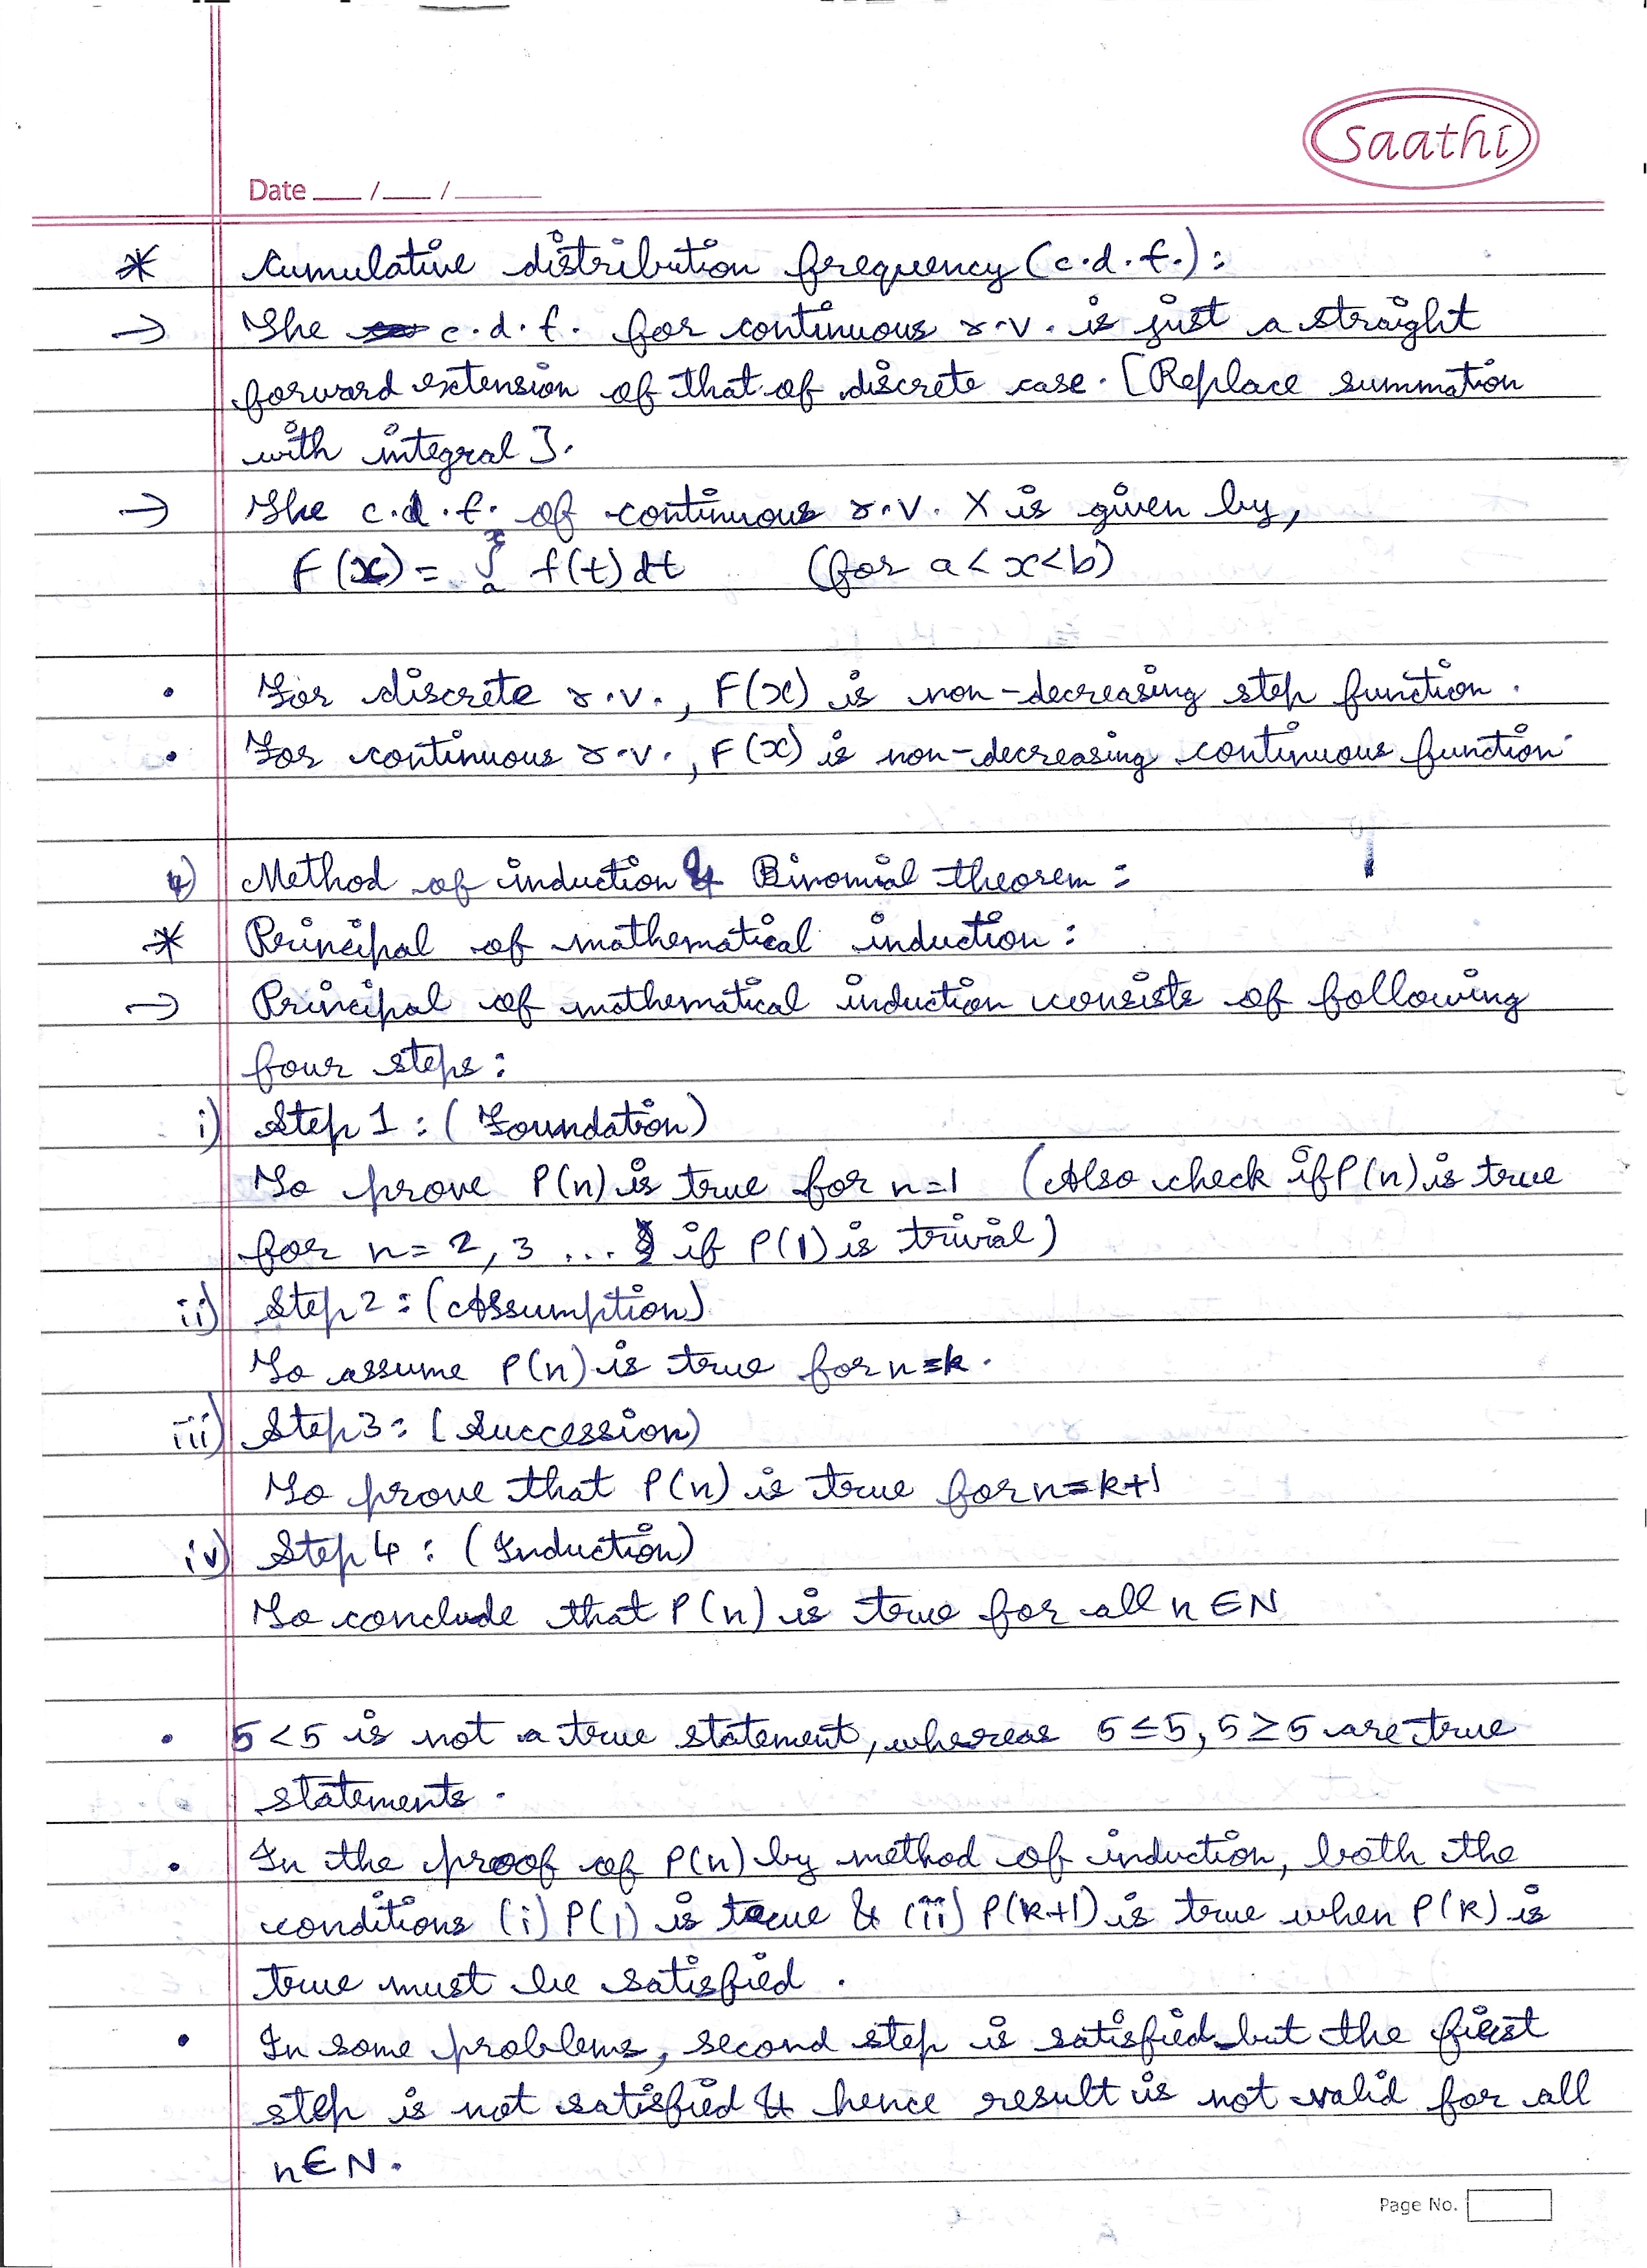 saathi
Date ___ / ___ / ______
* Cumulative distribution frequency (c.d.f.) :
→ The c.d.f. for continuous r.v. is just a straight
forward extension of that of discrete case. [Replace summation
with integral].
→ The c.d.f. of continuous r.v. X is given by,
F(x) = ∫ₐˣ f(t) dt (for a < x < b)
• For discrete r.v., F(x) is non-decreasing step function.
• For continuous r.v., F(x) is non-decreasing continuous function.
4) Method of induction & Binomial theorem :
* Principal of mathematical induction :
→ Principal of mathematical induction consists of following
four steps :
i) Step 1 : (Foundation)
To prove P(n) is true for n=1 (Also check if P(n) is true
for n = 2, 3 ... if P(1) is trivial)
ii) Step 2 : (Assumption)
To assume P(n) is true for n=k.
iii) Step 3 : (Succession)
To prove that P(n) is true for n=k+1
iv) Step 4 : (Induction)
To conclude that P(n) is true for all n ∈ N
• 5 < 5 is not a true statement, whereas 5 ≤ 5, 5 ≥ 5 are true
statements.
• In the proof of P(n) by method of induction, both the
conditions (i) P(1) is true & (ii) P(k+1) is true when P(k) is
true must be satisfied.
• In some problems, second step is satisfied but the first
step is not satisfied & hence result is not valid for all
n ∈ N.
Page No.